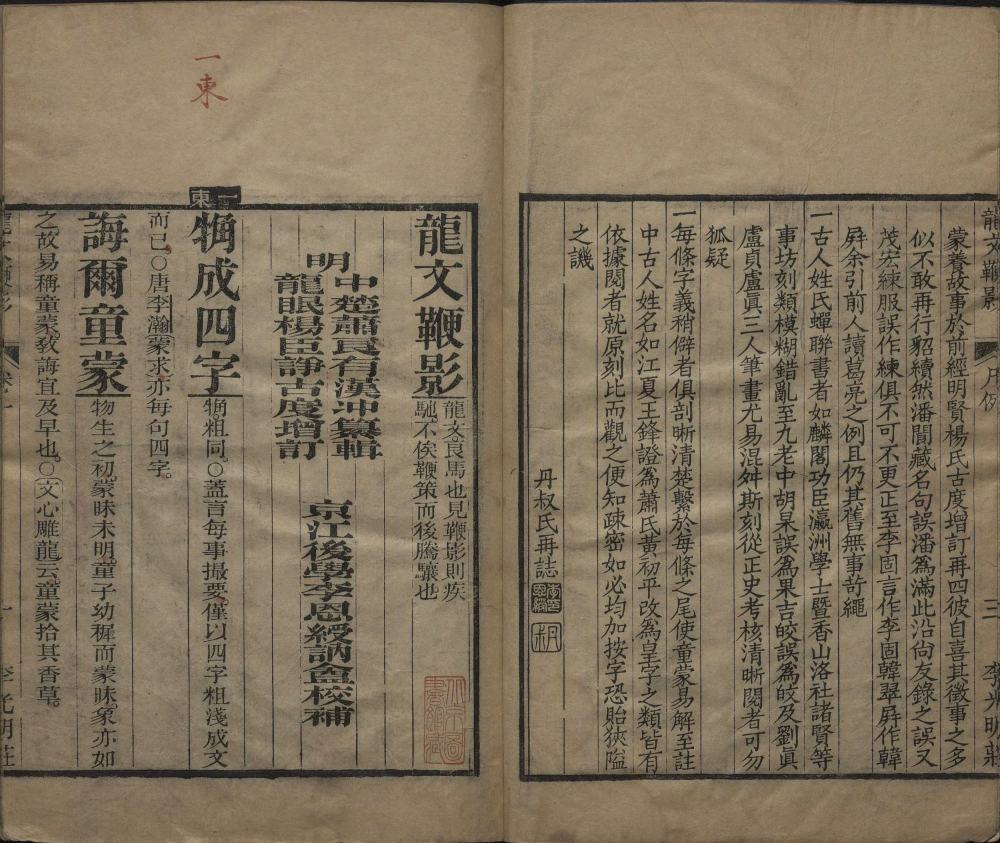 龍文鞭影
凡例
三
李光明莊
蒙養故事於前經明賢楊氏古度增訂再四彼自喜其徵事之多
似不敢再行貂續然潘閬藏名句誤潘為滿此沿尚友錄之誤又
茂宏練服誤作練俱不可不更正至李固言作李固韓翃屛作韓
屛余引前人讀葛亮之例且仍其舊無事苛繩
一古人姓氏蟬聯書者如麟閣功臣瀛洲學士暨香山洛社諸賢等
事坊刻類模糊錯亂至九老中胡杲誤為果吉皎誤為皎及劉眞
盧貞盧眞三人筆畫尤易混舛斯刻從正史考核清晰閱者可勿
狐疑
一每條字義稍僻者俱剖晰清楚繫於每條之尾使童蒙易解至註
中古人姓名如江夏王鋒證為蕭氏黃初平改為皇字之類皆有
依據閱者就原刻比而觀之便知疎密如必均加按字恐貽狹隘
之譏
丹叔氏再誌
一東
龍文鞭影
龍文良馬也見鞭影則疾
馳不俟鞭策而後騰驤也
明
中楚蕭良有漢冲纂輯
龍眠楊臣諍古度增訂
京江後學李恩綬訥盦校補
一東
觕成四字
觕粗同〇蓋言每事撮要僅以四字粗淺成文
而已〇唐李瀚蒙求亦每句四字
誨爾童蒙
物生之初蒙昧未明童子幼穉而蒙昧象亦如
之故易稱童蒙敎誨宜及早也〇文心雕龍云童蒙拾其香草
龍文鞭影
卷一
一
李光明莊